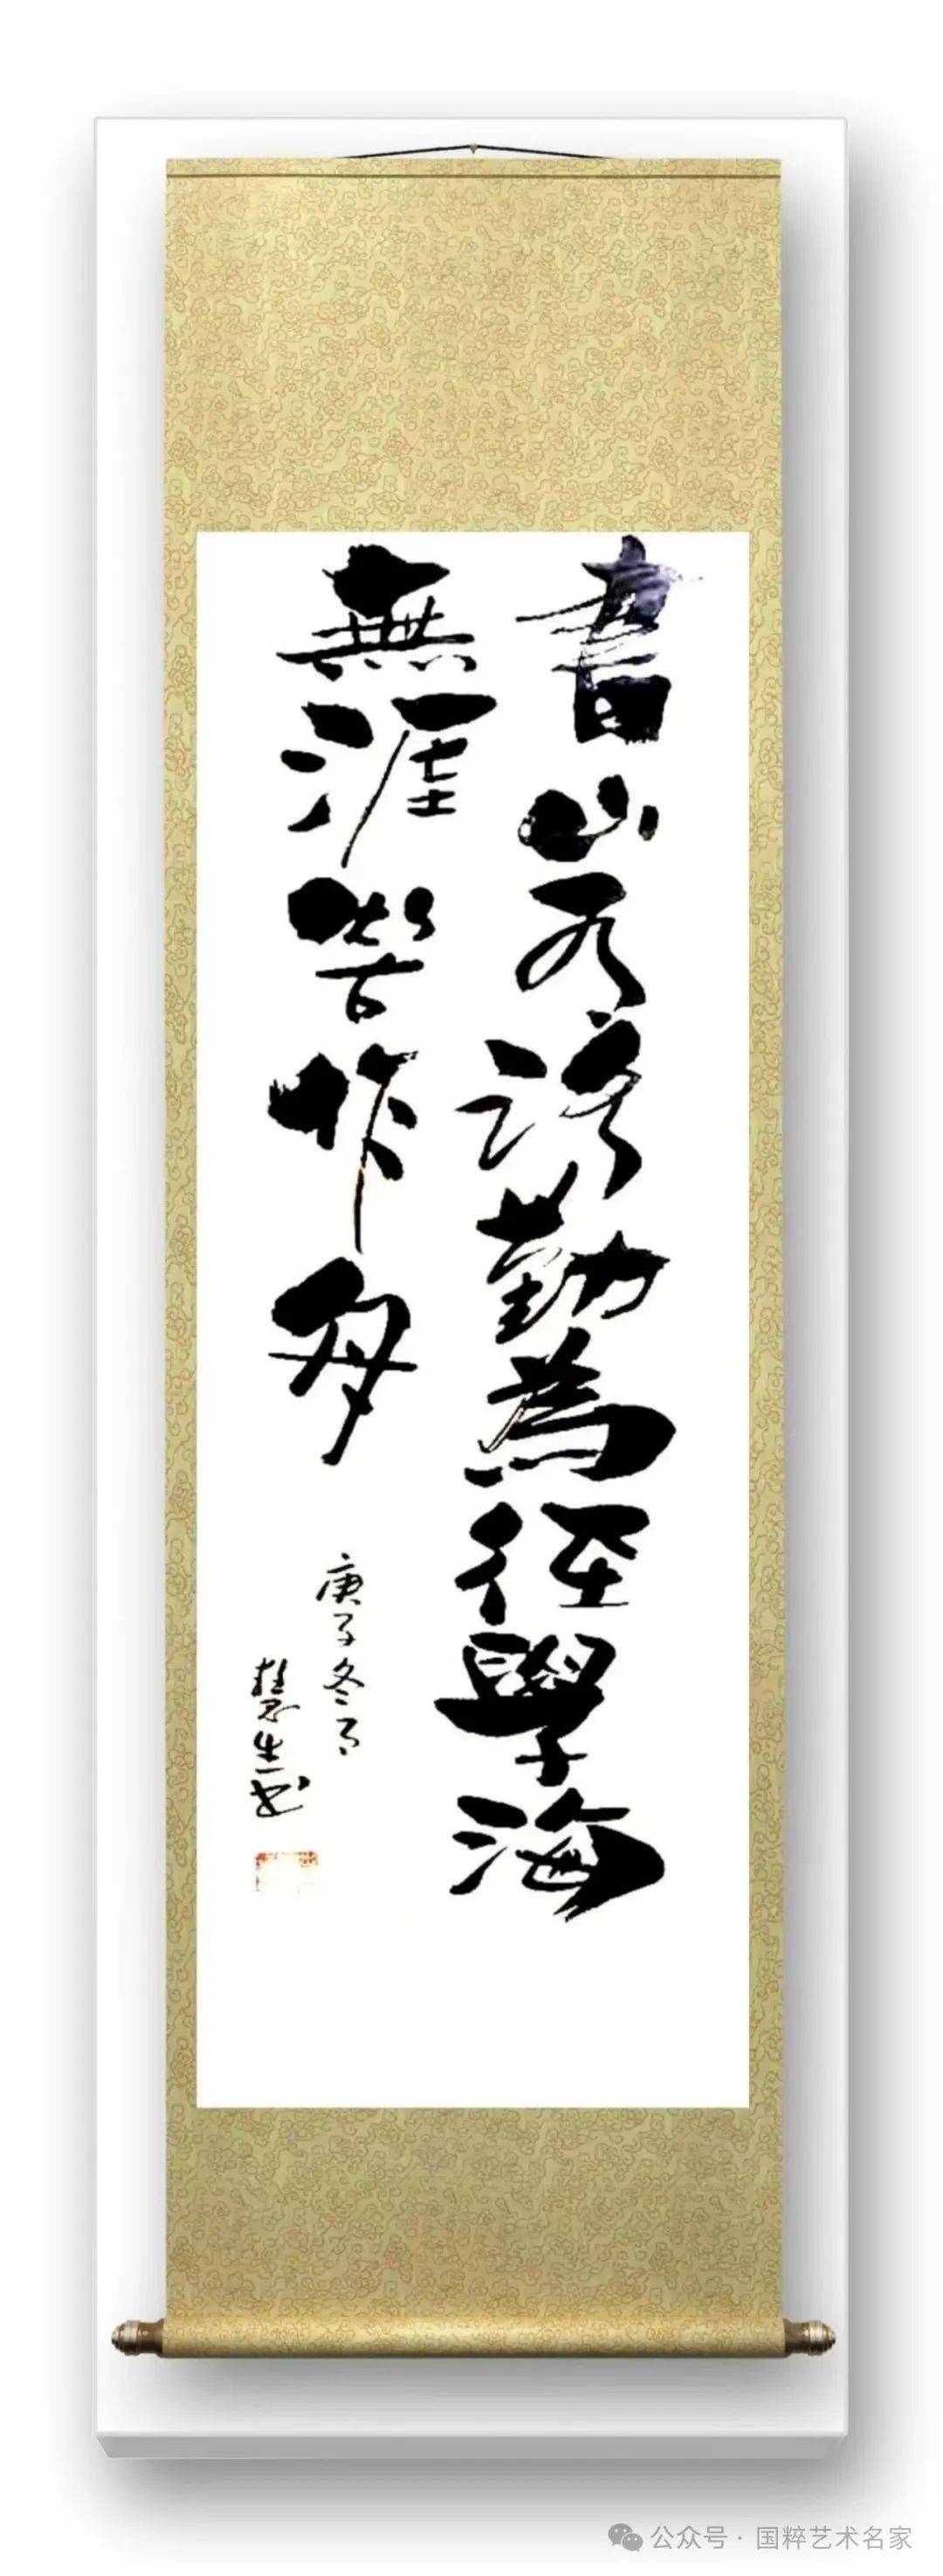 書山有路勤為徑學海
無涯苦作舟
庚子冬月
慧生书
公众号 · 国粹艺术名家